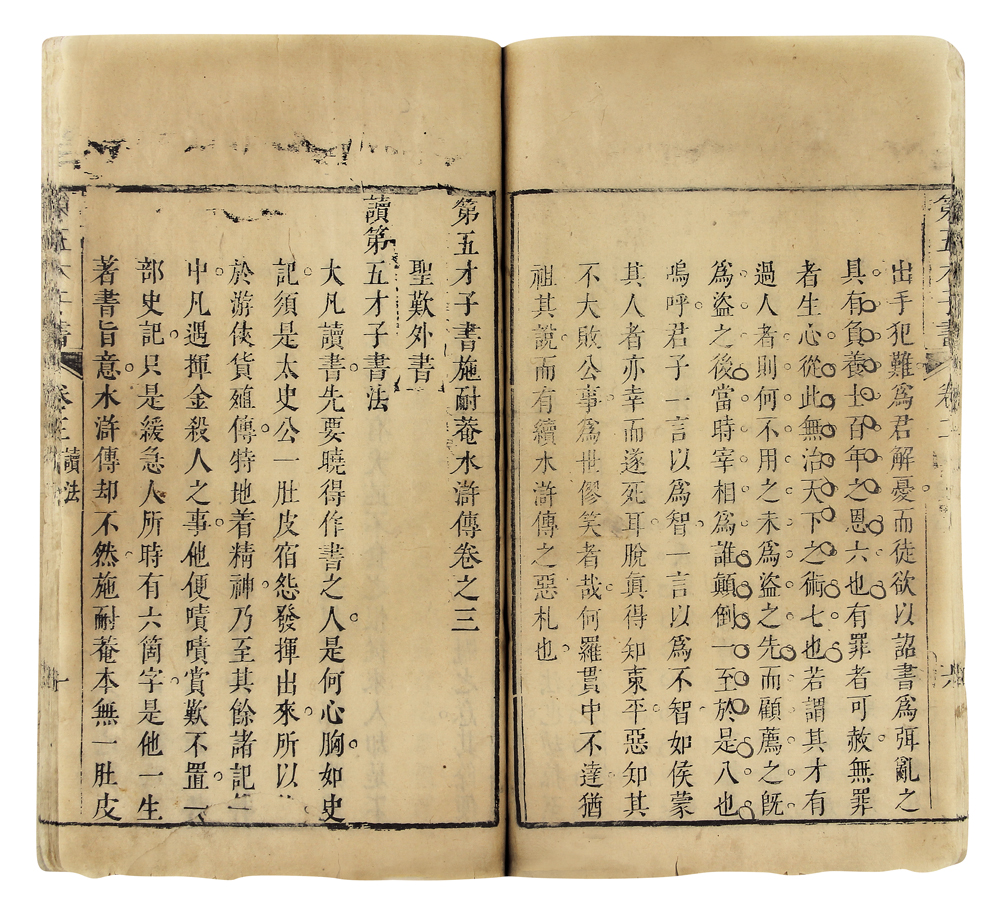 出手犯難爲君解憂而徒欲以詔書爲弭亂之
具有負養士百年之恩六也有罪者可赦無罪
者生心從此無治天下之術七也若謂其才有
過人者則何不用之未爲盜之先而顧薦之旣
爲盜之後當時宰相爲誰顛倒一至於是八也
嗚呼君子一言以爲智一言以爲不智如侯蒙
其人者亦幸而遂死耳脫眞得知東平惡知其
不大敗公事爲世僇笑者哉何羅貫中不達猶
祖其說而有續水滸傳之惡札也
第五才子書
卷二
六
第五才子書施耐菴水滸傳卷之三
聖歎外書
讀第五才子書法
大凡讀書先要曉得作書之人是何心胸如史
記須是太史公一肚皮宿怨發揮出來所以
於游俠貨殖傳特地着精神乃至其餘諸記
中凡遇揮金殺人之事他便嘖嘖賞歎不置一
部史記只是緩急人所時有六箇字是他一生
著書旨意水滸傳却不然施耐菴本無一肚皮
第五才子書
卷三
讀法
一